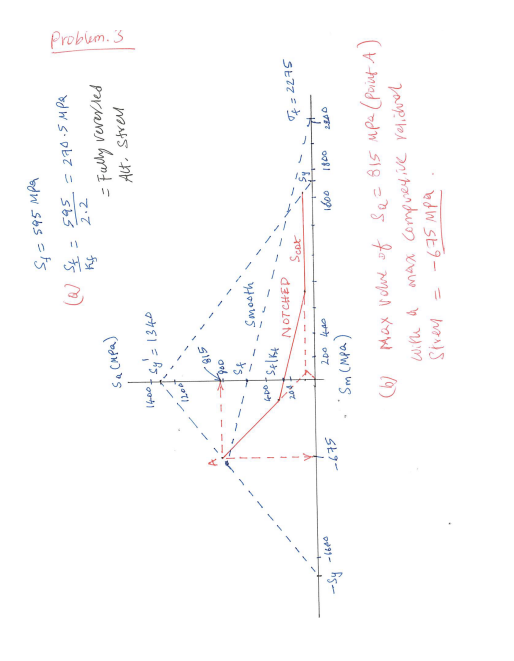 Problem.3
Sf = 595 MPa
(a) Sf/Kf = 595/2.2 = 270.5 MPa
= Fully reversed
Alt. Stress
Sa (MPa)
1400
Sy' = 1340
1200
815
800
Sf
Smooth
400
Sf/Kf
200
NOTCHED
Scat
σf = 2275
A
-Sy
-1600
-675
200
400
1600
Sy
1800
2200
Sm (MPa)
(b) Max value of Sa = 815 MPa (Point A)
with a max compressive residual
Stress = -675 MPa.